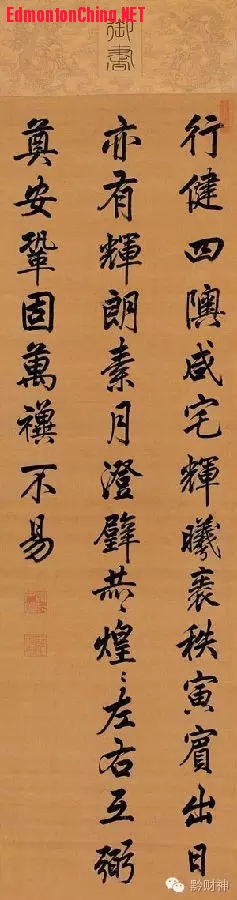 EdmontonChing.NET
御書
行健四隩咸宅輝曦秩寅賓出日
亦有輝朗素月澄璧〻煌〻左右互弼
奠安鞏固萬禩不易
黔财神